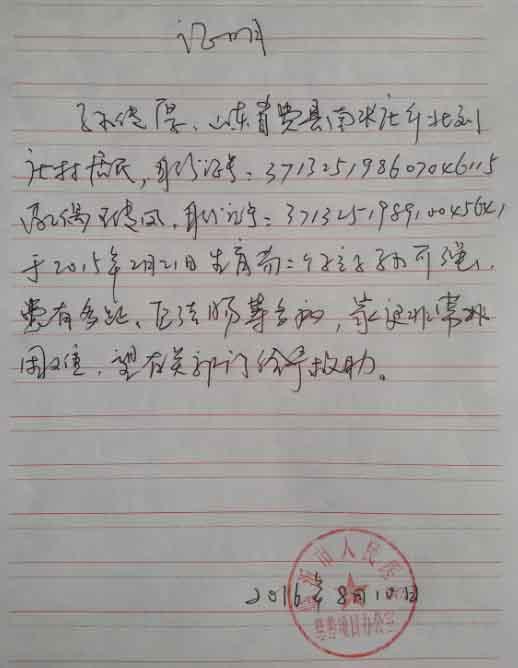 证明
孙传厚、山东省费县南张庄乡北刘
庄村居民，身份证号：371325198607046115
配偶王传凤，身份证号：371325198910045641
于2015年2月21日生育第二个孩子孙可强，
患有多趾、巨结肠等多病，家庭非常非
困难，望有关部门给予救助。
市人民
2016年8月10日
慈善项目办公室